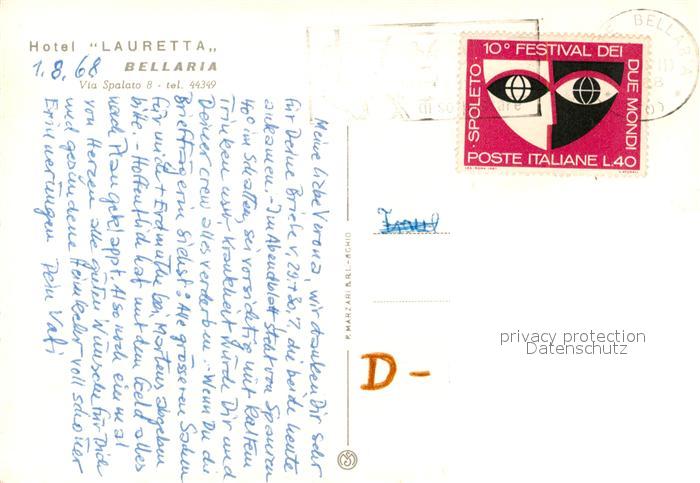 Hotel "LAURETTA„
BELLARIA
1.8.68
Via Spalato 8 - tel. 44349
Meine liebe Verona, wir danken Dir sehr
für Deine Briefe v. 29.+30.7, die beide heute
ankamen. - Im Abendblatt stand von Spanien
40° im Schatten sei vorsichtig mit kalten
Trinken usw, Krankheit würde Dir und
Deiner crew alles verderben. - Wenn Du die
Briefträgerin siehst: Alle grösseren Sachen
für mich + Erdmuthe bei Martens abgeben
bitte. - Hoffentlich hat mit dem Geld alles
nach Plan geklappt. Also noch einmal
von Herzen alle guten Wünsche für Dich
und gesunde Heimkehr voll schöner
Erinnerungen Dein Vati
P. MARZARI S.R.L. - SCHIO
BELLARIA
SPOLETO · 10° FESTIVAL DEI DUE MONDI
POSTE ITALIANE L.40
D -
privacy protection
Datenschutz